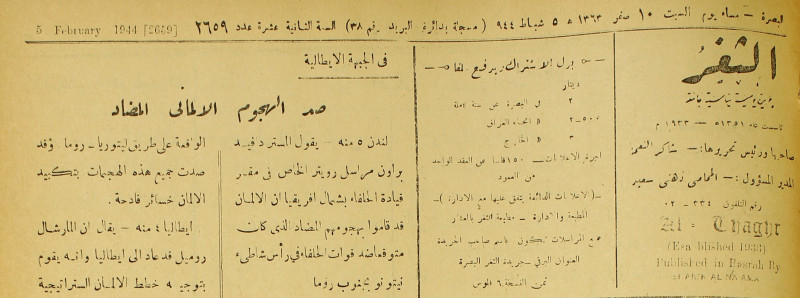 البصرة – مساء يوم السبت ١٠ صفر ١٣٦٣ ه ٥ شباط ٩٤٤ ( مسجلة بدائرة البريد رقم ٣٨) السنة الثانية عشرة عدد ٢٦٥٩
5 February 1944 [2659]
الثغر
يومية سياسية جامعة
تأسست عام ١٣٥١ ه – ١٩٣٣ م
صاحبها ورئيس تحريرها :– شاكر النعمة
المدير المسؤول :– المحامي زهني سعيد
رقم التلفون ٣٣٤ – ٠٢
Al - Thaghr
(Established 1933)
Published in Basrah By
SHAKIR AL NIAMA
بدل الاشتراك ويدفع سلفا
دينار
٢ في البصرة عن سنة كاملة
٢–٥٠٠ » انحاء العراق
٣ » الخارج
اجرة الاعلانات – ١٥٠ فلسا عن العقد الواحد
من العمود
–( الاعلانات الدائمة يتفق عليها مع الادارة )–
المطبعة والادارة – مطبعة الثغر بالعشار
جميع المراسلات تكون باسم صاحب الجريدة
العنوان البرقي – جريدة الثغر البصرة
ثمن النسخة ٦ فلوس
في الجبهة الايطالية
صد الهجوم الالماني المضاد
لندن ٥ منه – يقول المستر دفيد
براون مراسل رويتر الخاص في مقر
قيادة الحلفاء بشمال افريقيا ان الالمان
قد قاموا بهجومهم المضاد الذي كان
متوقعا ضد قوات الحلفاء في رأس شاطىء
نيتونو بجنوب روما
الواقعة على طريق ليتوريا – روما. وقد
صدت جميع هذه الهجمات بتكبيد
الالمان خسائر فادحة.
ايطاليا ٤ منه – يقال ان المارشال
روميل قد عاد الى ايطاليا وانه يقوم
بتوجيه خطط الالمان الستراتيجية